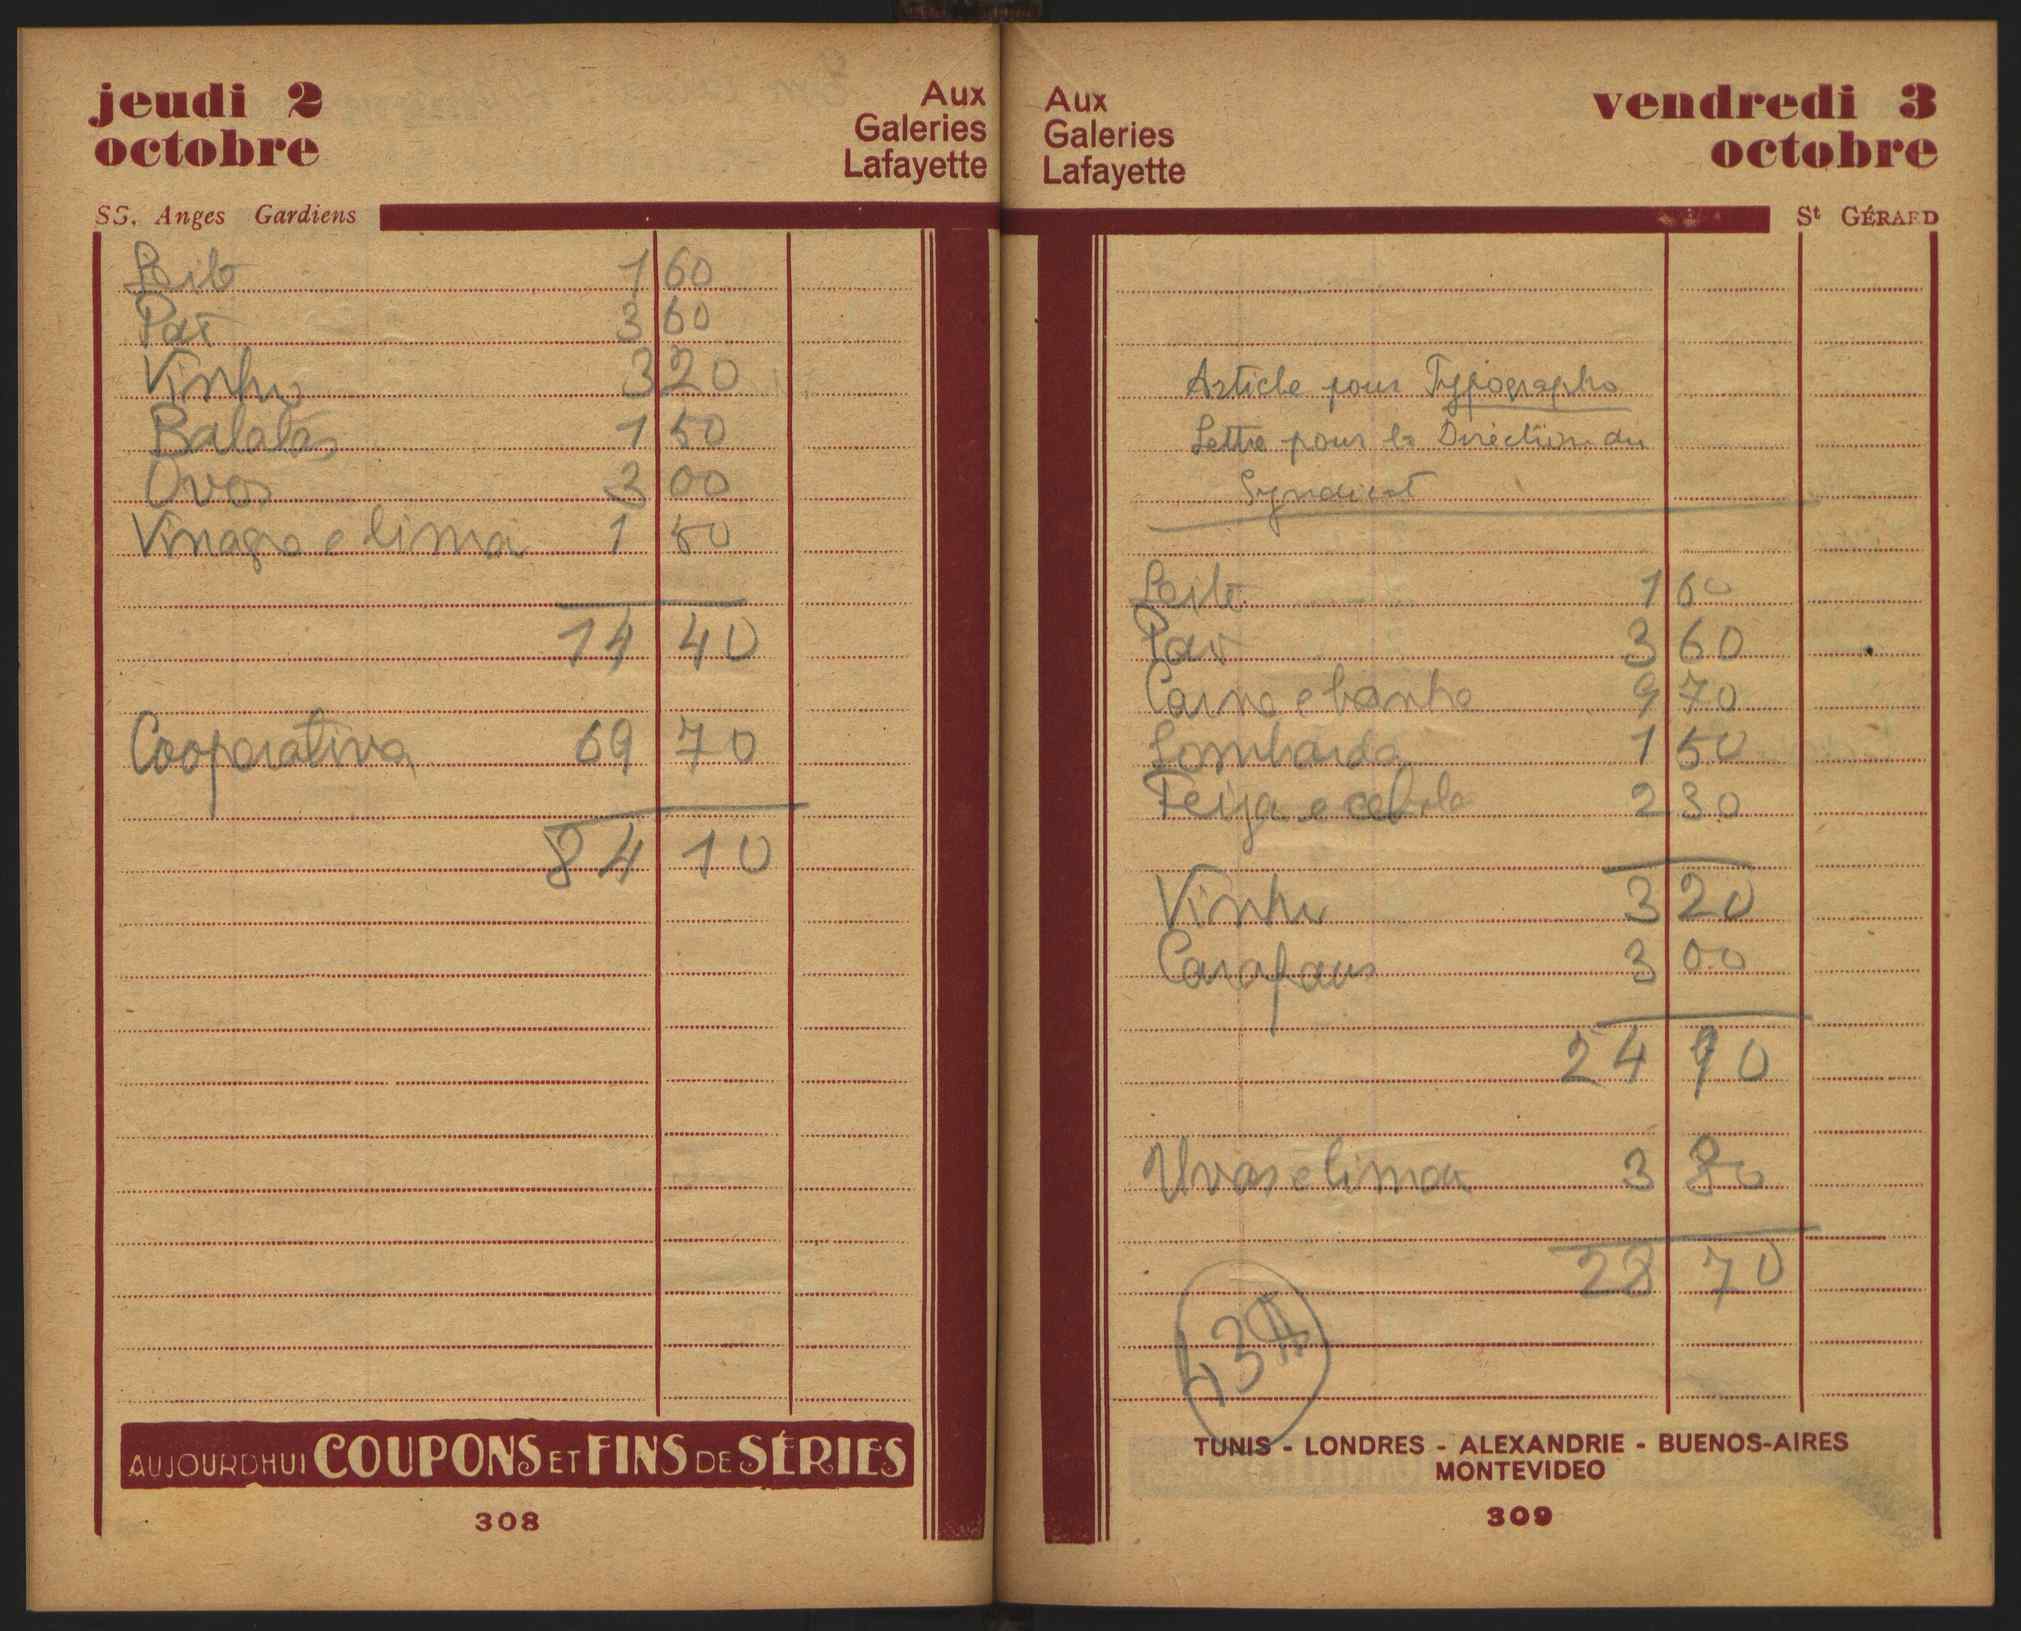 jeudi 2
octobre
Aux
Galeries
Lafayette
SS. Anges Gardiens
Leite 1 60
Pão 3 60
Vinho 3 20
Batatas 1 50
Ovos 3 00
Vinagre e lima 1 50
14 40
Cooperativa 69 70
84 10
AUJOURDHUI COUPONS ET FINS DE SÉRIES
308
Aux
Galeries
Lafayette
vendredi 3
octobre
St GÉRARD
Article pour Typographo
Lettre pour la Direction du
Syndicat
Leite 1 60
Pão 3 60
Carne e banha 9 70
Lombarda 1 50
Feija e cebola 2 30
Vinho 3 20
Carapaus 3 00
24 90
Uvas e limão 3 80
28 70
TUNIS - LONDRES - ALEXANDRIE - BUENOS-AIRES
MONTEVIDEO
309